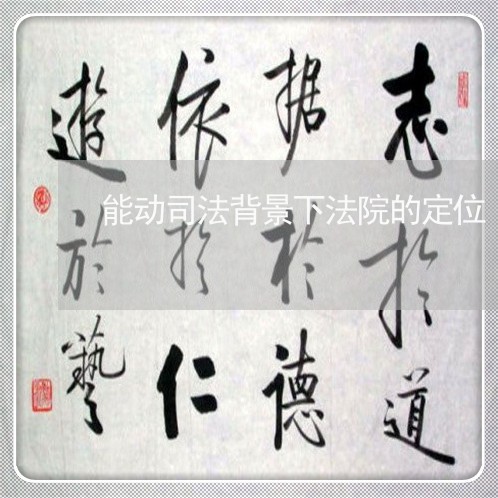 志於道
据於德
依於仁
遊於藝
能动司法背景下法院的定位